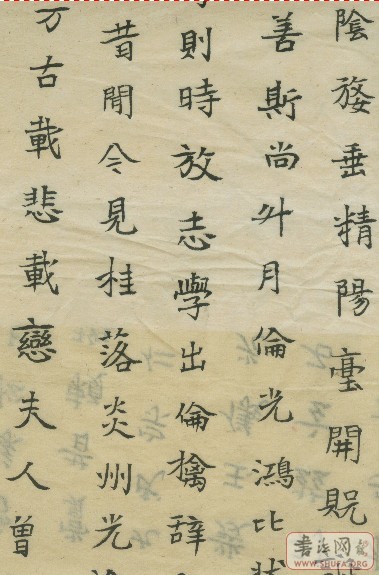 陰婺垂精陽臺開貺
善斯尚升月倫光鴻比
則時放志學出倫擒辭
昔聞今見桂落炎州光
万古載悲載戀夫人曾
書法网
WWW.SHUFA.ORG